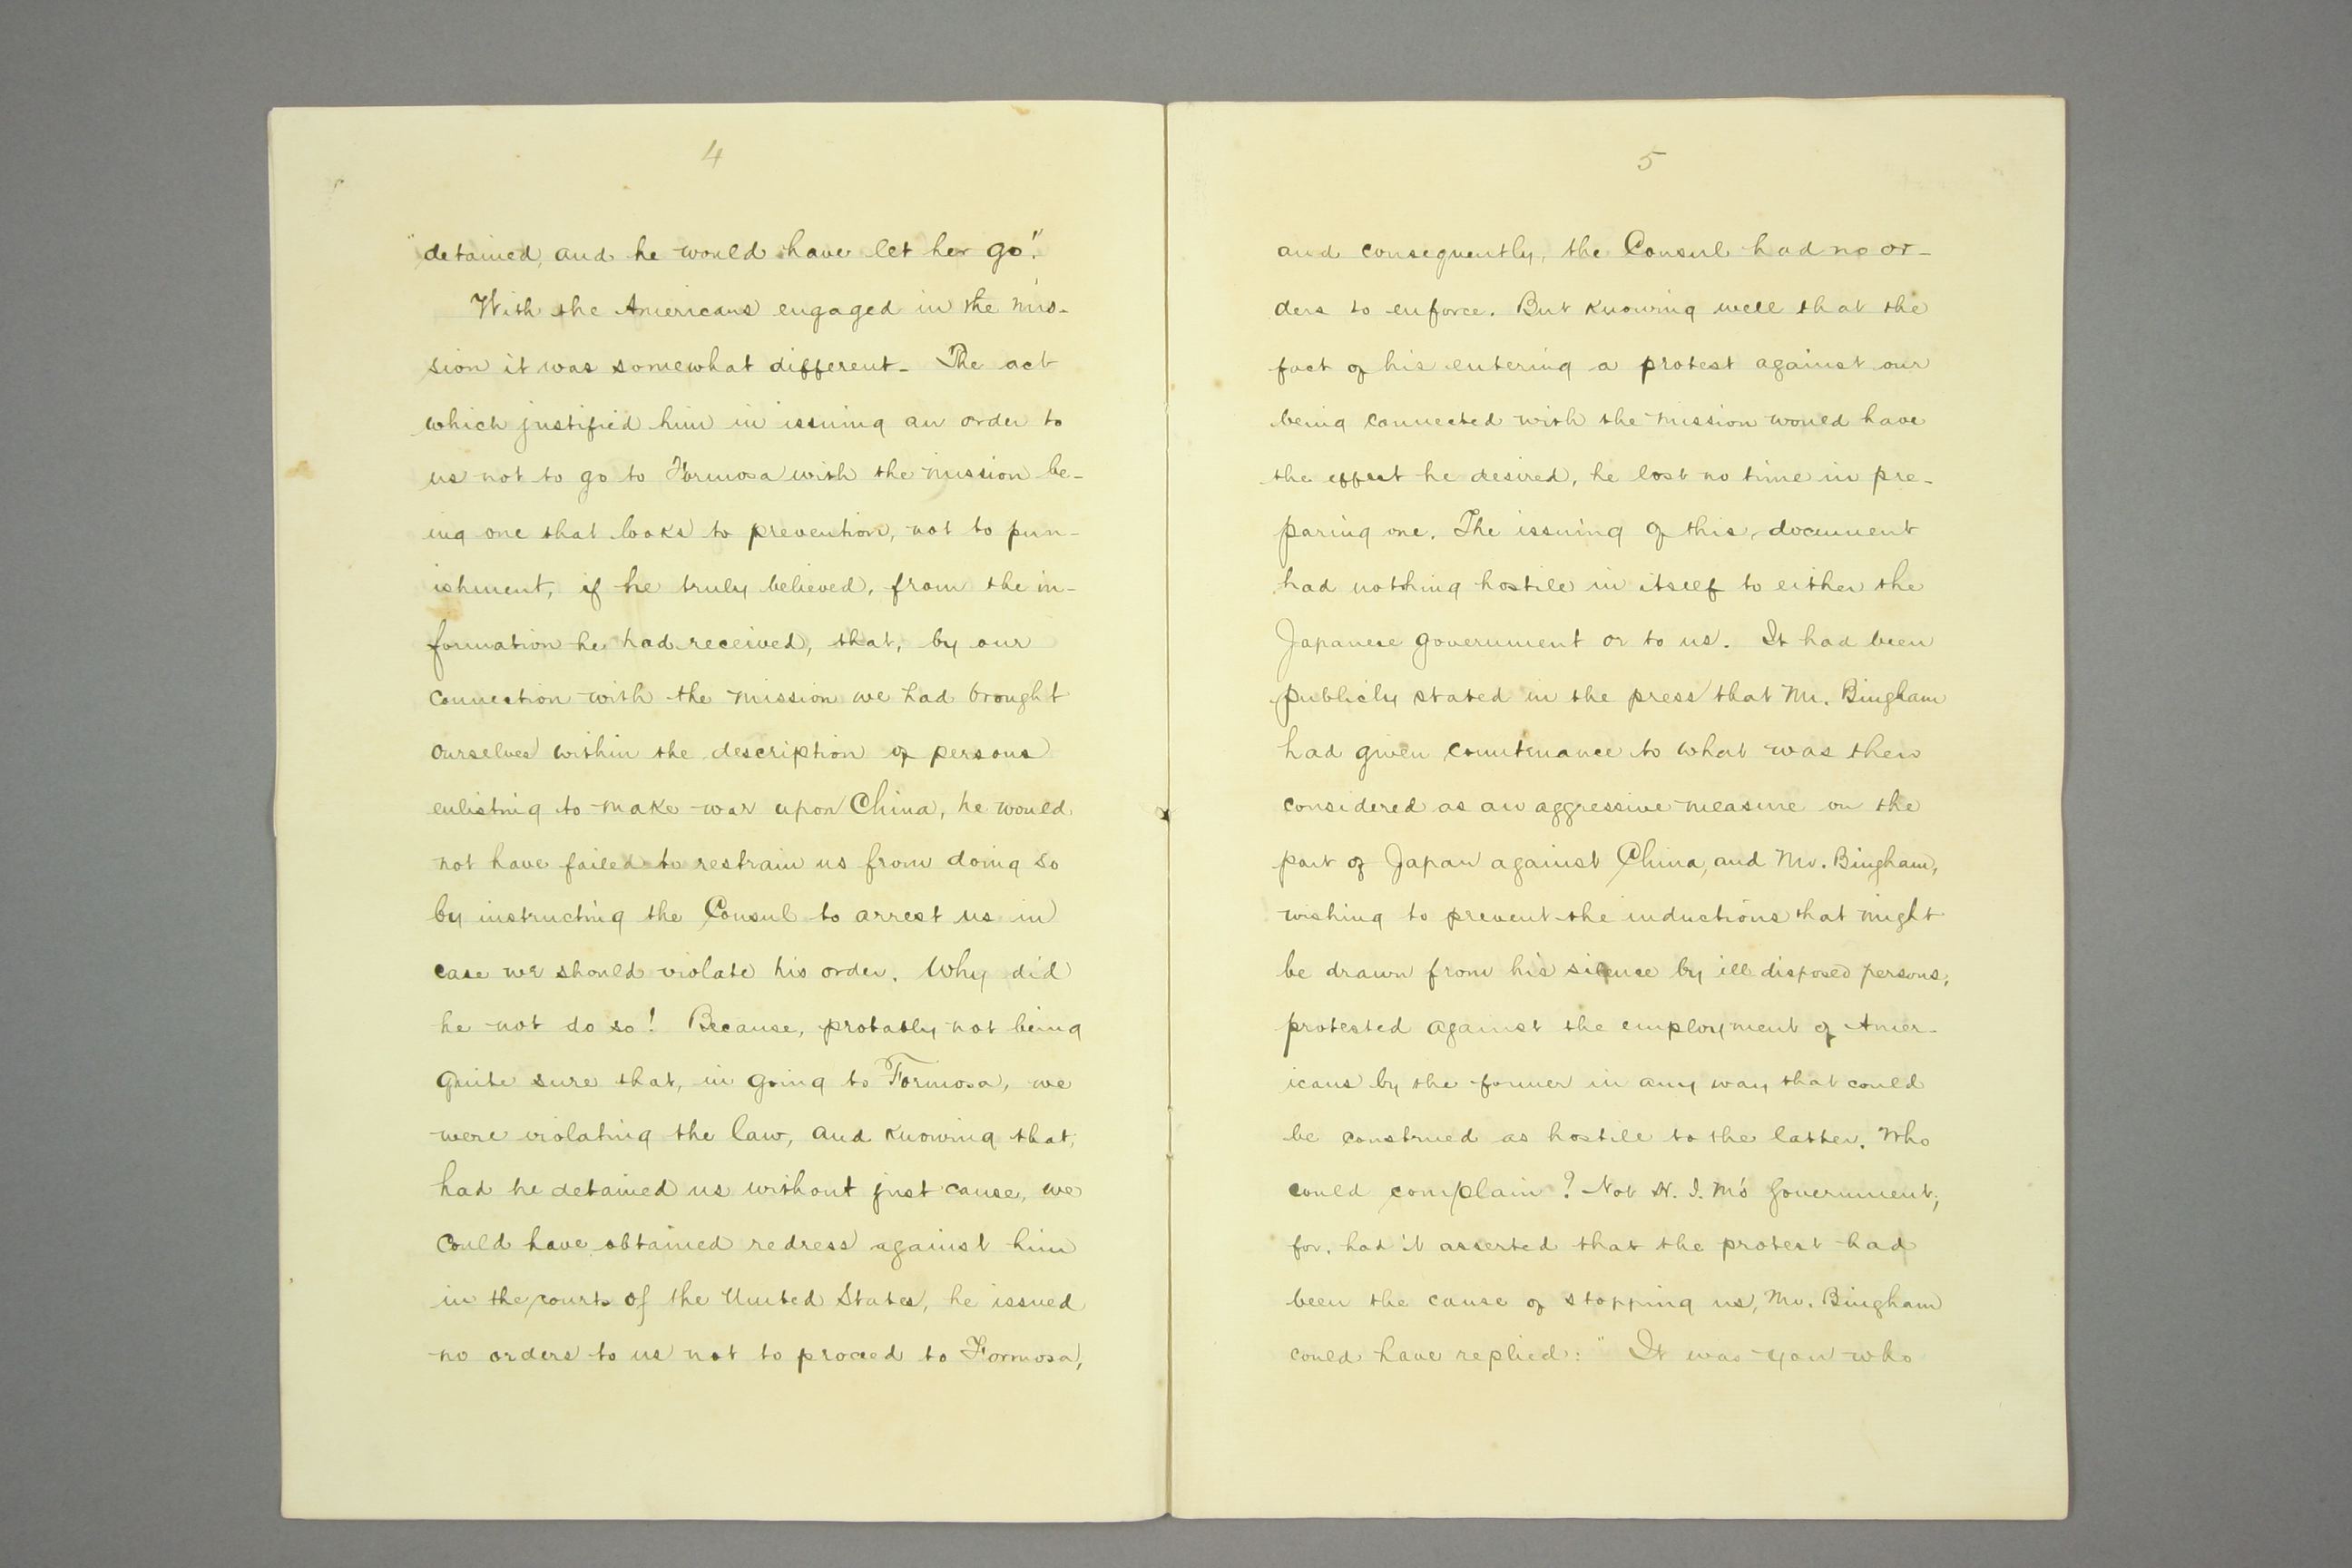 4
"detained, and he would have let her go."
With the Americans engaged in the mis-
sion it was somewhat different. The act
which justified him in issuing an order to
us not to go to Formosa with the mission be-
ing one that looks to prevention, not to pun-
ishment, if he truly believed, from the in-
formation he had received, that, by our
connection with the mission we had brought
ourselves within the description of persons
enlisting to make war upon China, he would
not have failed to restrain us from doing so
by instructing the Consul to arrest us in
case we should violate his order. Why did
he not do so! Because, probably not being
quite sure that, in going to Formosa, we
were violating the law, and knowing that,
had he detained us without just cause, we
could have obtained redress against him
in the courts of the United States, he issued
no orders to us not to proceed to Formosa,
5
and consequently, the Consul had no or-
ders to enforce. But knowing well that the
fact of his entering a protest against our
being connected with the mission would have
the effect he desired, he lost no time in pre-
paring one. The issuing of this document
had nothing hostile in itself to either the
Japanese government or to us. It had been
publicly stated in the press that Mr. Bingham
had given countenance to what was then
considered as an aggressive measure on the
part of Japan against China, and Mr. Bingham,
wishing to prevent the inductions that might
be drawn from his silence by ill disposed persons,
protested against the employment of Amer-
icans by the former in any way that could
be construed as hostile to the latter. Who
could complain? Not H. I. M's Government,
for, had it asserted that the protest had
been the cause of stopping us, Mr. Bingham
could have replied: "It was you who